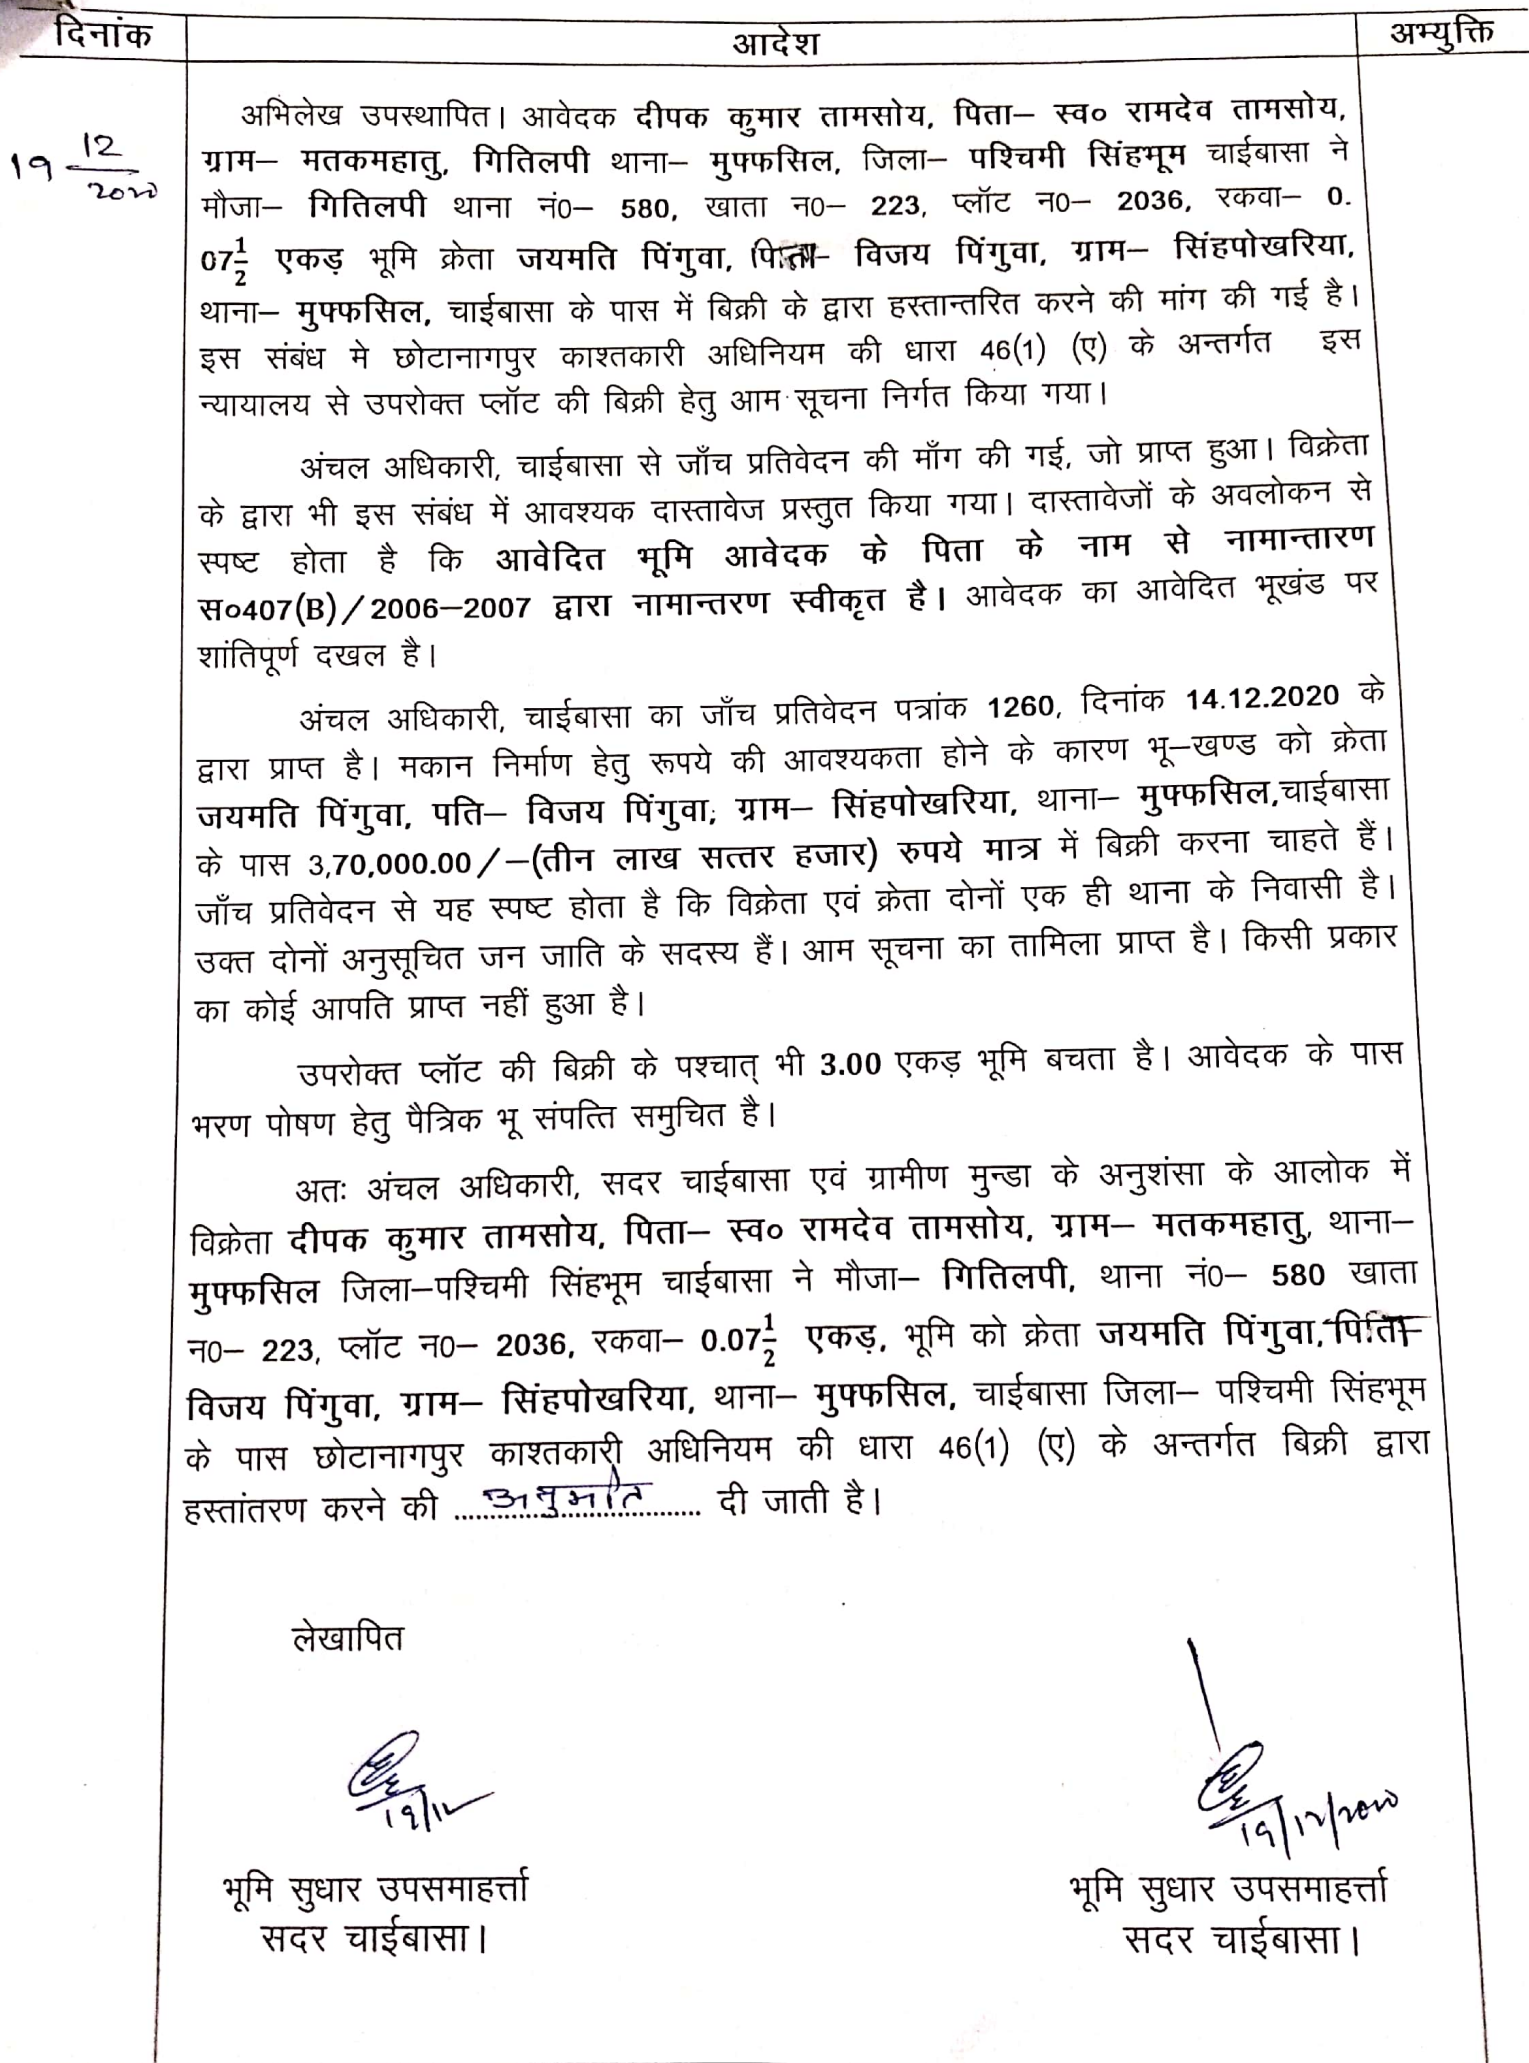 दिनांक
आदेश
अभ्युक्ति
19 12/2020
अभिलेख उपस्थापित। आवेदक दीपक कुमार तामसोय, पिता– स्व० रामदेव तामसोय,
ग्राम– मतकमहातु, गितिलपी थाना– मुफ्फसिल, जिला– पश्चिमी सिंहभूम चाईबासा ने
मौजा– गितिलपी थाना नं0– 580, खाता न0– 223, प्लॉट न0– 2036, रकवा– 0.
07½ एकड़ भूमि क्रेता जयमति पिंगुवा, पिता– विजय पिंगुवा, ग्राम– सिंहपोखरिया,
थाना– मुफ्फसिल, चाईबासा के पास में बिक्री के द्वारा हस्तान्तरित करने की मांग की गई है।
इस संबंध मे छोटानागपुर काश्तकारी अधिनियम की धारा 46(1) (ए) के अन्तर्गत इस
न्यायालय से उपरोक्त प्लॉट की बिक्री हेतु आम सूचना निर्गत किया गया।
अंचल अधिकारी, चाईबासा से जाँच प्रतिवेदन की माँग की गई, जो प्राप्त हुआ। विक्रेता
के द्वारा भी इस संबंध में आवश्यक दास्तावेज प्रस्तुत किया गया। दास्तावेजों के अवलोकन से
स्पष्ट होता है कि आवेदित भूमि आवेदक के पिता के नाम से नामान्तारण
स०407(B)/2006–2007 द्वारा नामान्तरण स्वीकृत है। आवेदक का आवेदित भूखंड पर
शांतिपूर्ण दखल है।
अंचल अधिकारी, चाईबासा का जाँच प्रतिवेदन पत्रांक 1260, दिनांक 14.12.2020 के
द्वारा प्राप्त है। मकान निर्माण हेतु रूपये की आवश्यकता होने के कारण भू–खण्ड को क्रेता
जयमति पिंगुवा, पति– विजय पिंगुवा, ग्राम– सिंहपोखरिया, थाना– मुफ्फसिल,चाईबासा
के पास 3,70,000.00/–(तीन लाख सत्तर हजार) रुपये मात्र में बिक्री करना चाहते हैं।
जाँच प्रतिवेदन से यह स्पष्ट होता है कि विक्रेता एवं क्रेता दोनों एक ही थाना के निवासी है।
उक्त दोनों अनुसूचित जन जाति के सदस्य हैं। आम सूचना का तामिला प्राप्त है। किसी प्रकार
का कोई आपति प्राप्त नहीं हुआ है।
उपरोक्त प्लॉट की बिक्री के पश्चात् भी 3.00 एकड़ भूमि बचता है। आवेदक के पास
भरण पोषण हेतु पैत्रिक भू संपत्ति समुचित है।
अतः अंचल अधिकारी, सदर चाईबासा एवं ग्रामीण मुन्डा के अनुशंसा के आलोक में
विक्रेता दीपक कुमार तामसोय, पिता– स्व० रामदेव तामसोय, ग्राम– मतकमहातु, थाना–
मुफ्फसिल जिला–पश्चिमी सिंहभूम चाईबासा ने मौजा– गितिलपी, थाना नं0– 580 खाता
न0– 223, प्लॉट न0– 2036, रकवा– 0.07½ एकड़, भूमि को क्रेता जयमति पिंगुवा, पिता–
विजय पिंगुवा, ग्राम– सिंहपोखरिया, थाना– मुफ्फसिल, चाईबासा जिला– पश्चिमी सिंहभूम
के पास छोटानागपुर काश्तकारी अधिनियम की धारा 46(1) (ए) के अन्तर्गत बिक्री द्वारा
हस्तांतरण करने की ....अनुमति.... दी जाती है।
लेखापित
19/12
19/12/2020
भूमि सुधार उपसमाहर्त्ता
सदर चाईबासा।
भूमि सुधार उपसमाहर्त्ता
सदर चाईबासा।